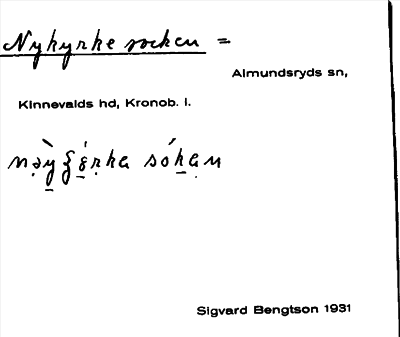 Nykyrke socken =
Almundsryds sn,
Kinnevalds hd, Kronob. l.
Sigvard Bengtson 1931